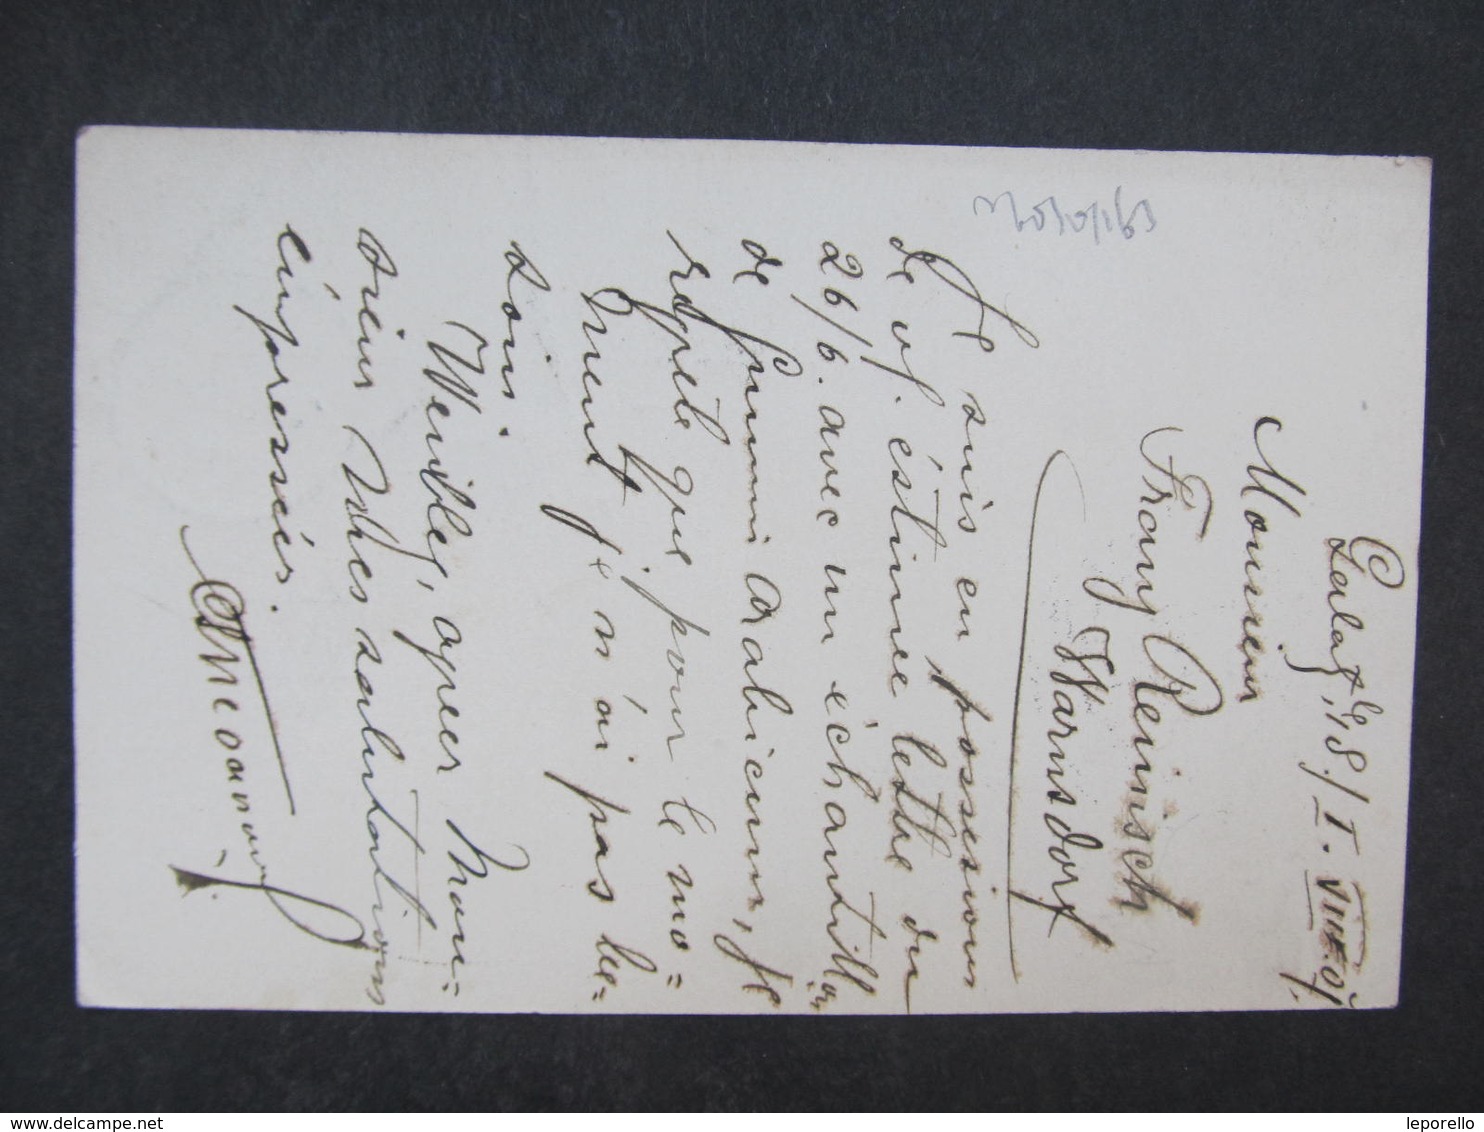 Galatz, le 18./I. VIII. 01.
Monsieur
Franz Reinisch
Warnsdorf
Je suis en possession
de v/. éstimée lettre du
26/6. avec un échantillon
de gummi arabicum, je
regrete que pour le mo=
ment je n'ai pas be=
soin.
Veuilleg, agreer Mon=
sieur Mes salutations
empressés.
www.delcampe.net
leporello